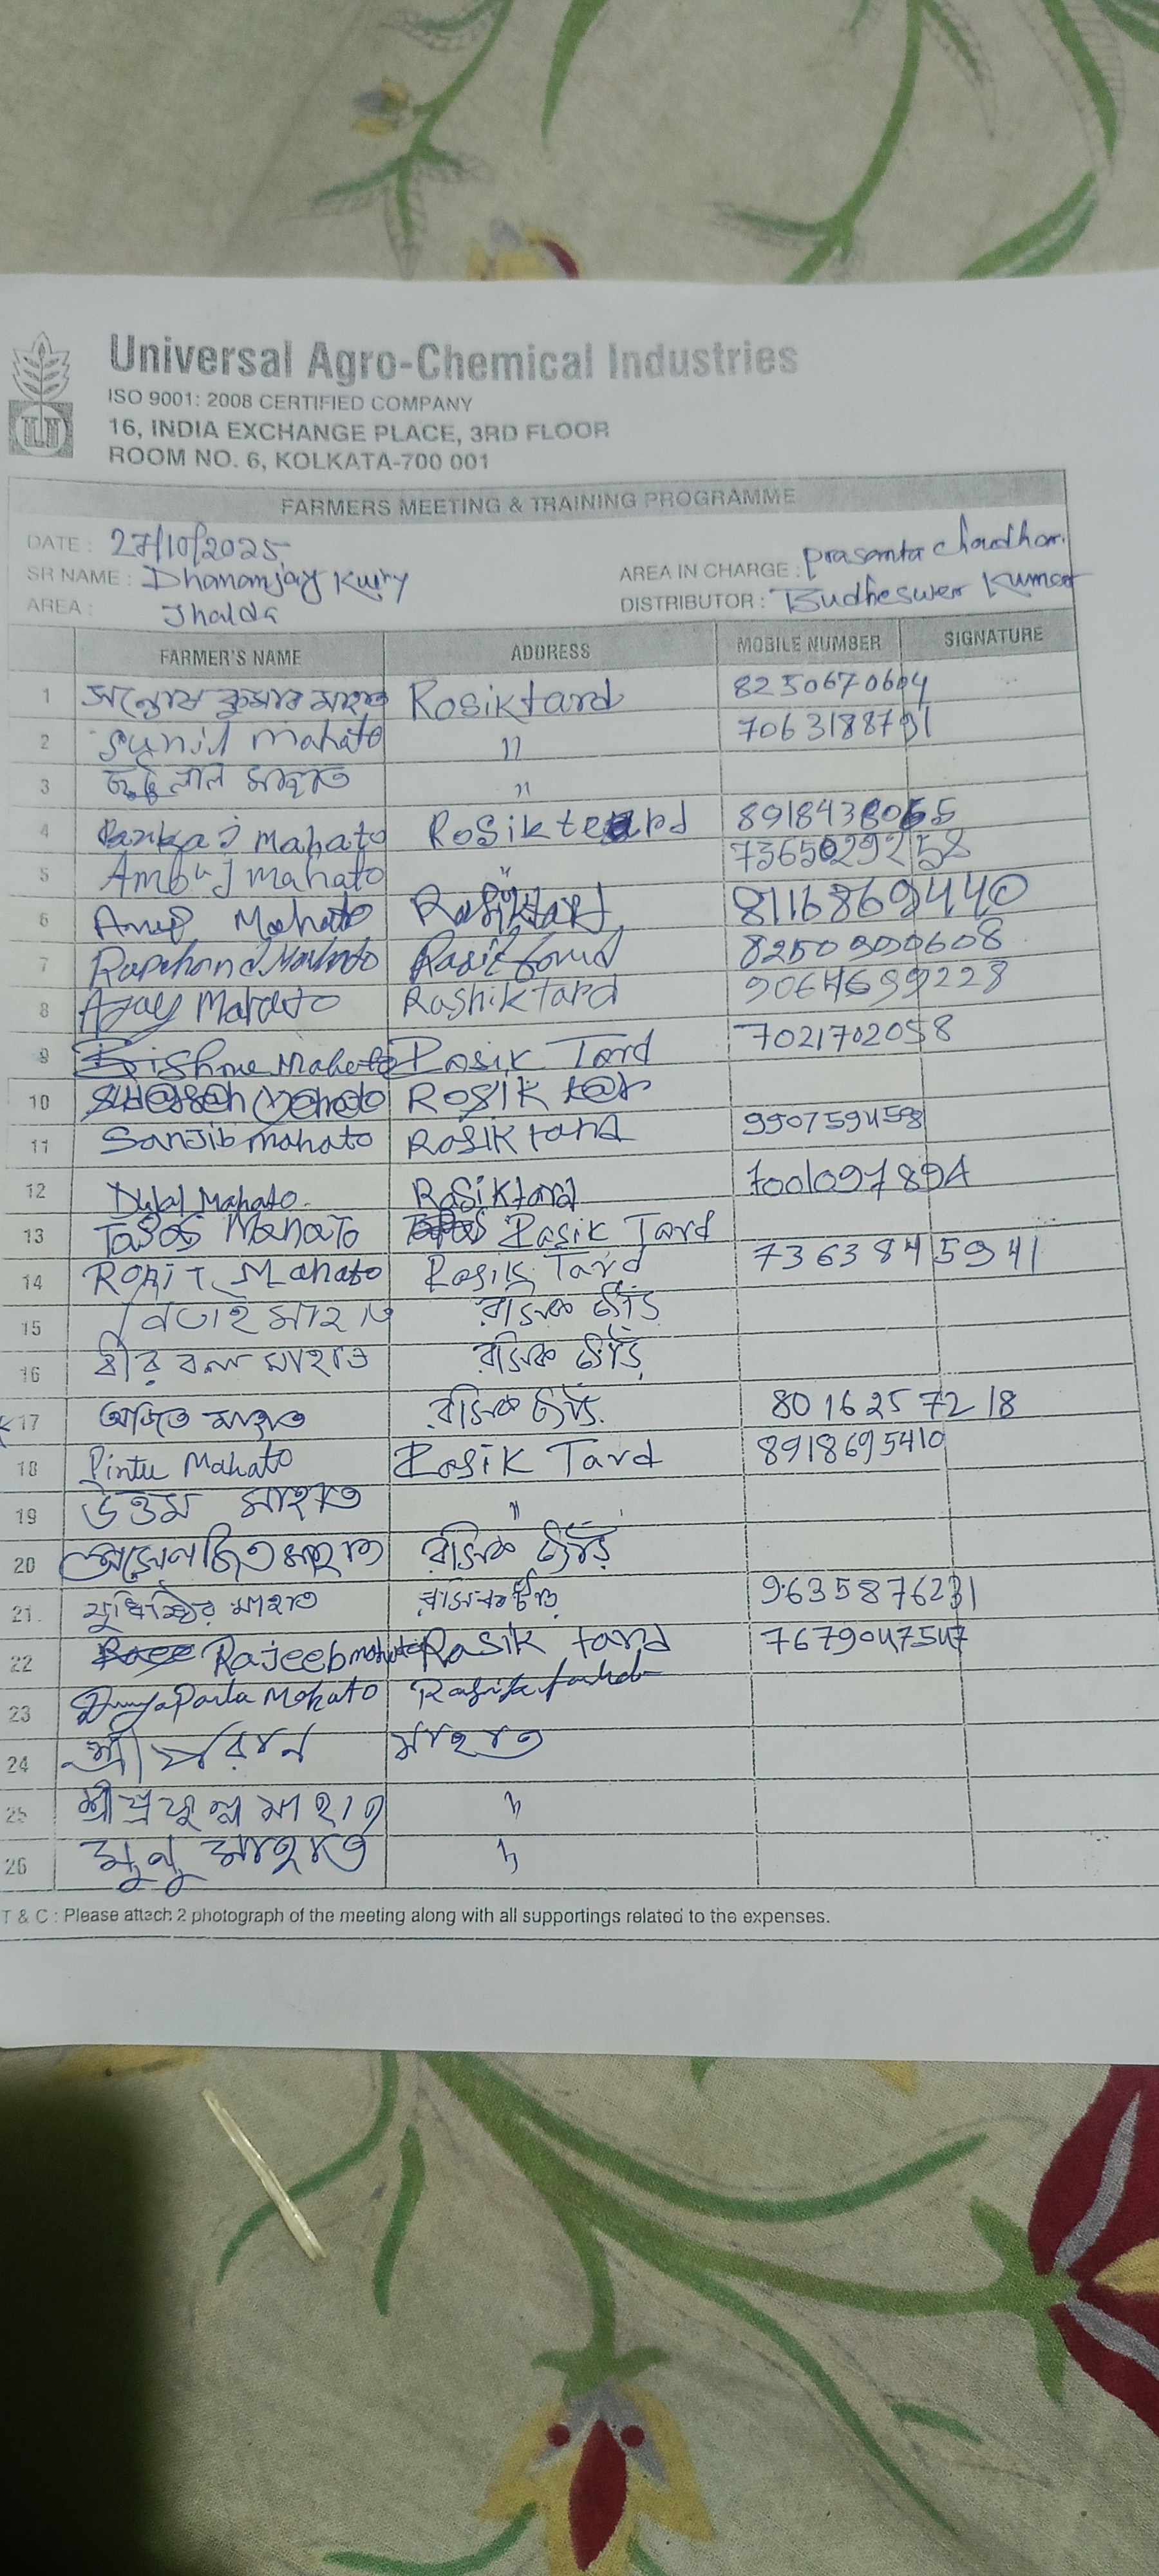 Universal Agro-Chemical Industries
ISO 9001: 2008 CERTIFIED COMPANY
16, INDIA EXCHANGE PLACE, 3RD FLOOR
ROOM NO. 6, KOLKATA-700 001
FARMERS MEETING & TRAINING PROGRAMME
DATE : 27/10/2025
SR NAME : Dhananjay Kuiry AREA IN CHARGE : prasanta Chaudhari
AREA : Jhalda DISTRIBUTOR : Budheswer Kumar
FARMER'S NAME ADDRESS MOBILE NUMBER SIGNATURE
1 সন্তোষ কুমার মাহাত Rosiktard 8250670604
2 Sunil Mahato " 7063188791
3 মাহাত "
4 Pankaj Mahato Rosiktard 8918438065
5 Ambuj Mahato " 7365029258
6 Anup Mahato Rasiktard 8116869440
7 Rupchand Mahato Rasiktard 8250900608
8 Ajay Mahato Rashiktard 9064699228
9 Mahato Rosik Tard 7021702058
10 Mahato Rosik
11 Sanjib mahato Rosiktand 990759458
12 Dulal Mahato Rosiktand 7001097894
13 Mahato Rasik Tard
14 Rohit Mahato Rosik Tard 7363845941
15 নিতাই মাহাত রসিক টাঁড়
16 বীরবল মাহাত রসিক টাঁড়
17 অজিত মাহাত রসিক টাঁড় 8016257218
18 Pintu Mahato Rosik Tard 8918695410
19 উত্তম মাহাত "
20 মাহাত রসিক টাঁড়
21. যুধিষ্ঠির মাহাত রসিকটাঁড় 9635876231
22 Rajeeb mahato Rasik tand 7679047547
23 Mahato
24 শ্রী পরান মাহাত
25 শ্রী প্রফুল্ল মাহাত "
26 মাহাত "
T & C : Please attach 2 photograph of the meeting along with all supportings related to the expenses.